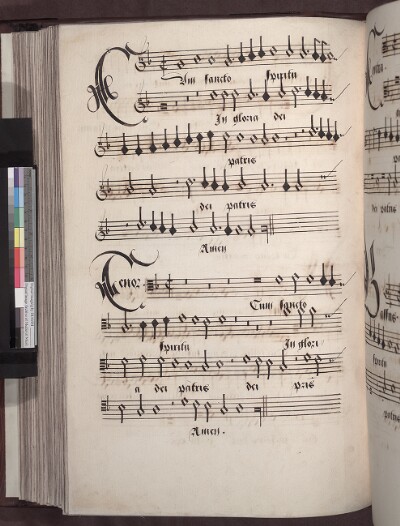 Cum sancto spiritu
In gloria dei
patris
dei patris
Amen
Tenor
Cum sancto
spiritu In glori
a dei patris dei pris
Amen.